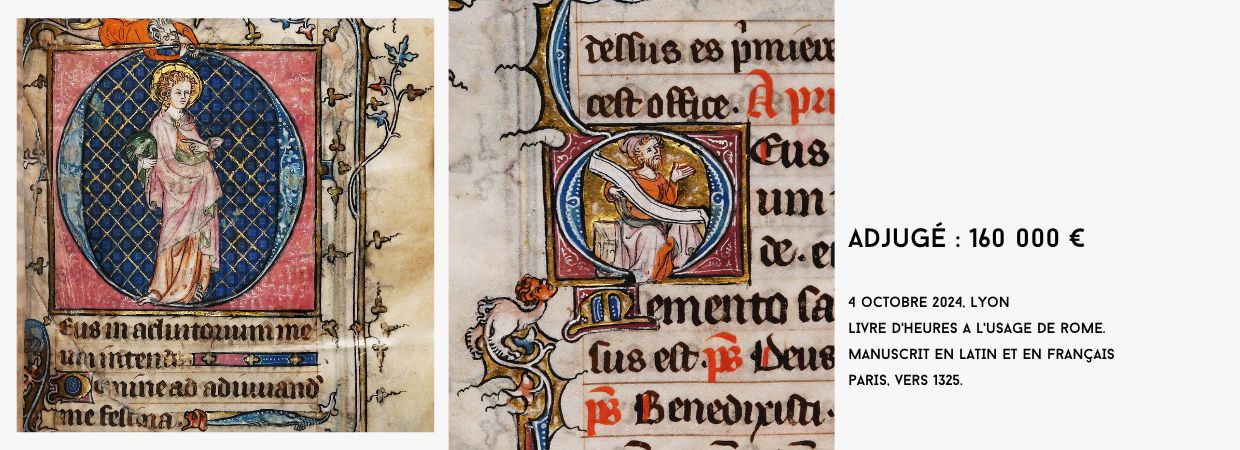 Eus in adiutorium me
um intend
Domine ad adiuuand'
me festina.
dessus es p̄miere
cest office. A pri
Eus
um
de. et
Memento sa
sus est ps̄ Deus
ps̄ Benedixisti.
ADJUGÉ : 160 000 €
4 OCTOBRE 2024, LYON
LIVRE D'HEURES A L'USAGE DE ROME.
MANUSCRIT EN LATIN ET EN FRANÇAIS
PARIS, VERS 1325.